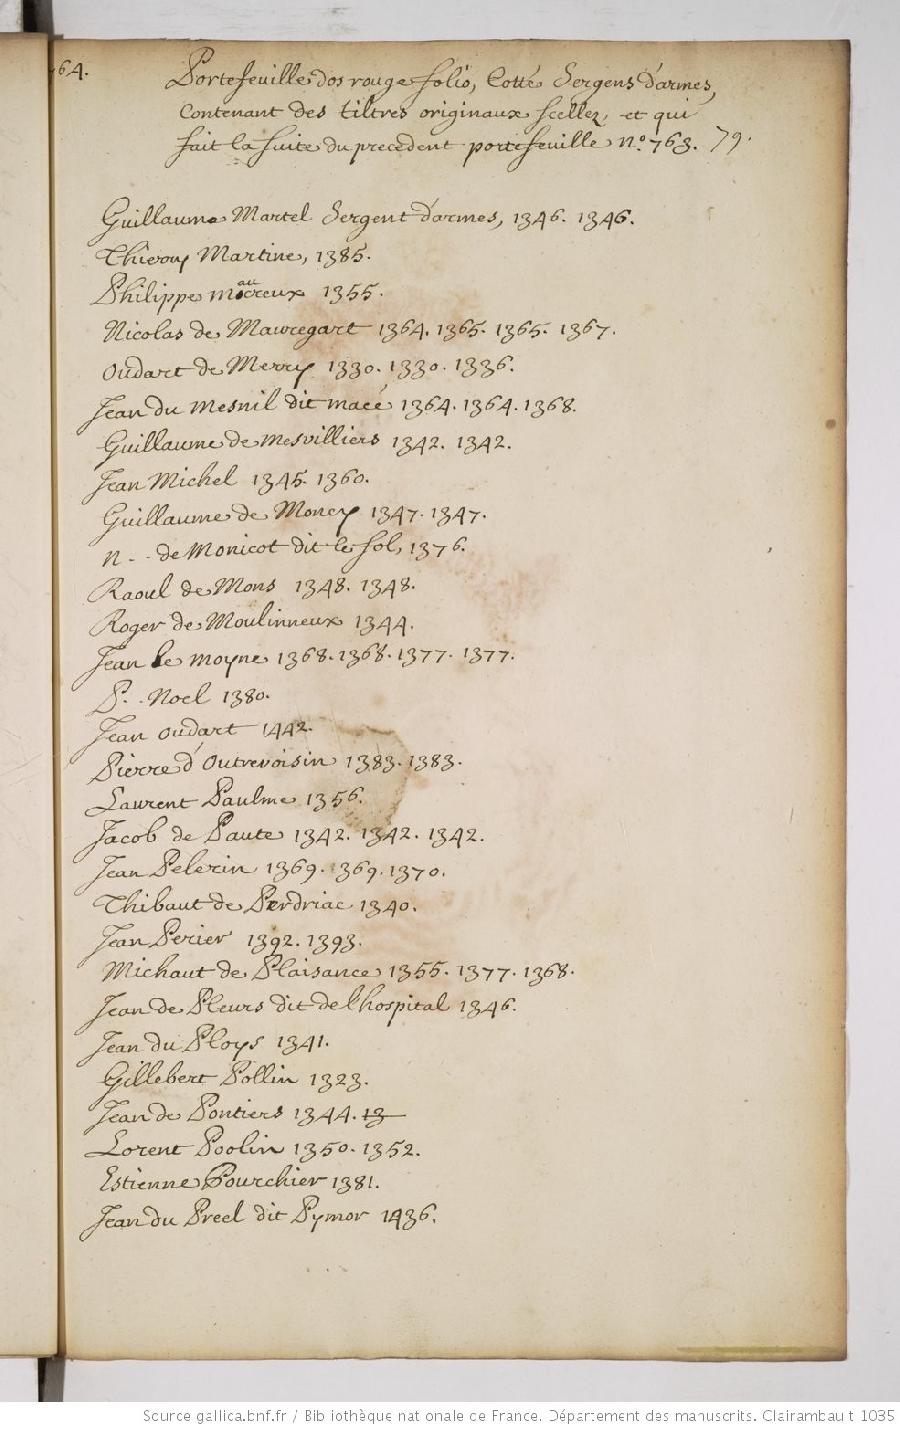 764.
Portefeuille dos rouge folio, Cotté Sergens d'armes,
Contenant des tiltres originaux scellez, et qui
fait la suite du precedent portefeuille n.º 763. 79.
Guillaume Martel Sergent d'armes, 1346. 1346.
Thierry Martine, 1385.
Philippe maucreux 1355.
Nicolas de Mauregart 1364. 1365. 1365. 1367.
Oudart de Merry 1330. 1330. 1336.
Jean du Mesnil dit macé 1364. 1364. 1368.
Guillaume de Mesvilliers 1342. 1342.
Jean Michel 1345. 1360.
Guillaume de Moncy 1347. 1347.
n - - de Monicot dit le fol, 1376.
Raoul de Mons 1348. 1348.
Roger de Moulinneux 1344.
Jean le moyne 1368. 1368. 1377. 1377.
P. . Noel 1380.
Jean oudart 1442.
Pierre d'Outrevoisin 1383. 1383.
Laurent Paulme 1356.
Jacob de Paute 1342. 1342. 1342.
Jean Pelerin 1369. 1369. 1370.
Thibaut de Perdriac 1340.
Jean Perier 1392. 1393.
Michaut de Plaisance 1355. 1377. 1368.
Jean de Pleurs dit de l'hospital 1346.
Jean du Ploys 1341.
Gillebert Pollin 1323.
Jean de Pontiers 1344. 13
Lorent Poolin 1350. 1352.
Estienne Pourchier 1381.
Jean du Preel dit Pymor 1436.
Source gallica.bnf.fr / Bibliothèque nationale de France. Département des manuscrits. Clairambault 1035